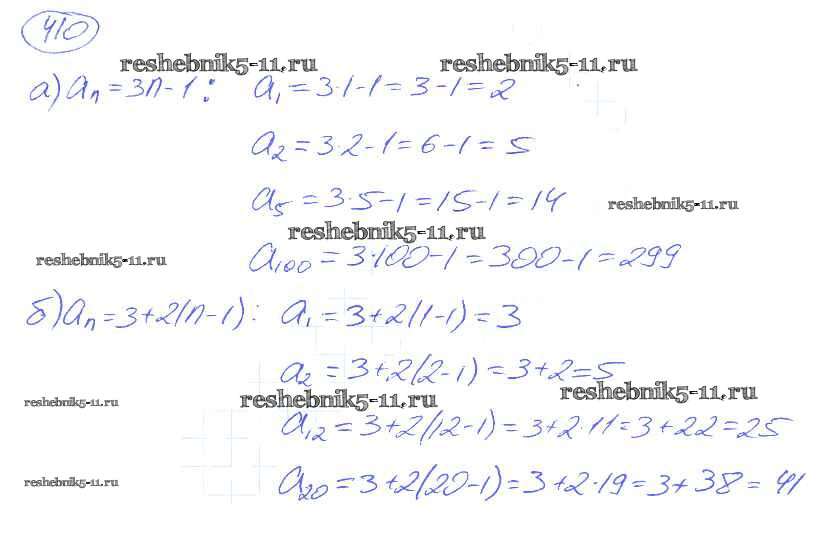 410
reshebnik5-11.ru reshebnik5-11.ru
а) aₙ = 3n - 1 : a₁ = 3·1 - 1 = 3 - 1 = 2
a₂ = 3·2 - 1 = 6 - 1 = 5
a₅ = 3·5 - 1 = 15 - 1 = 14
reshebnik5-11.ru
reshebnik5-11.ru
reshebnik5-11.ru
a₁₀₀ = 3·100 - 1 = 300 - 1 = 299
б) aₙ = 3 + 2(n - 1) : a₁ = 3 + 2(1 - 1) = 3
a₂ = 3 + 2(2 - 1) = 3 + 2 = 5
reshebnik5-11.ru reshebnik5-11.ru reshebnik5-11.ru
a₁₂ = 3 + 2(12 - 1) = 3 + 2·11 = 3 + 22 = 25
reshebnik5-11.ru
a₂₀ = 3 + 2(20 - 1) = 3 + 2·19 = 3 + 38 = 41